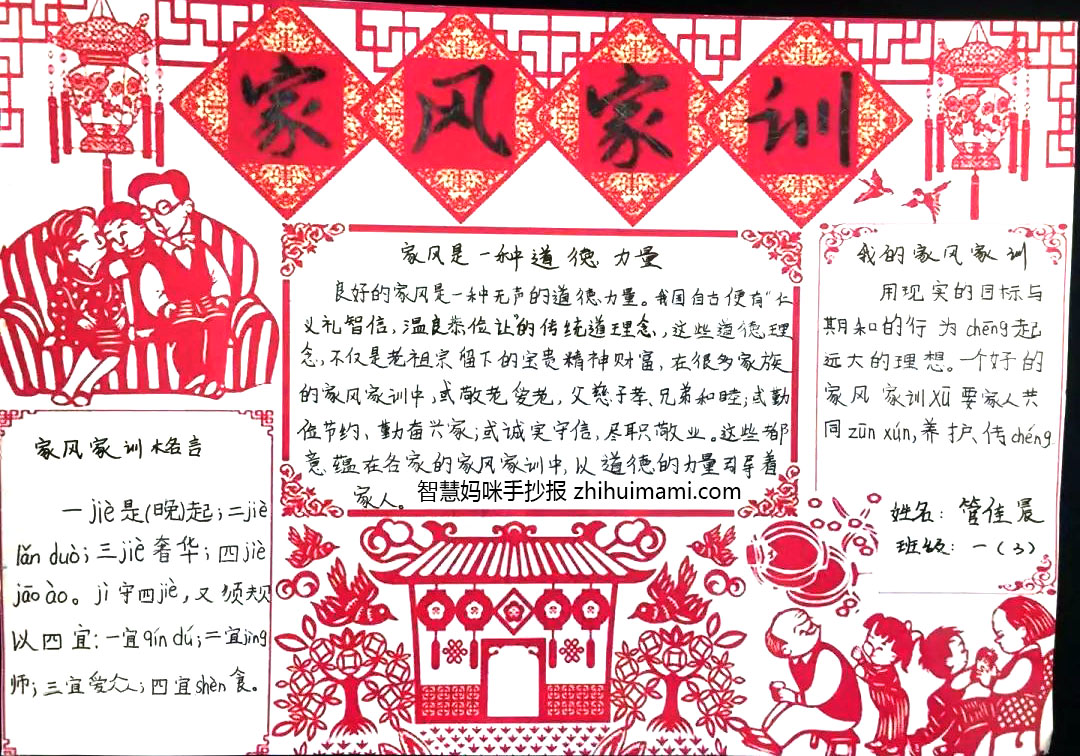 家风家训
家风是一种道德力量
良好的家风是一种无声的道德力量。我国自古便有“仁
义礼智信，温良恭俭让”的传统道理念，这些道德理
念，不仅是老祖宗留下的宝贵精神财富，在很多家族
的家风家训中，或敬老爱老，父慈子孝、兄弟和睦；或勤
俭节约、勤奋兴家；或诚实守信，尽职敬业。这些都
意蕴在各家的家风家训中，以道德的力量引导着
家人。
智慧妈咪手抄报 zhihuimami.com
我的家风家训
用现实的目标与
期和的行为chēng起
远大的理想。一个好的
家风家训xū要家人共
同zūn xún，养护、传chéng
家风家训格言
一jiè是(晚)起；二jiè
lǎn duò；三jiè奢华；四jiè
jāo ào。jì守四jiè，又须规
以四宜：一宜qín dú；二宜jìng
师；三宜爱众；四宜shèn食。
姓名：管佳晨
班级：一（3）